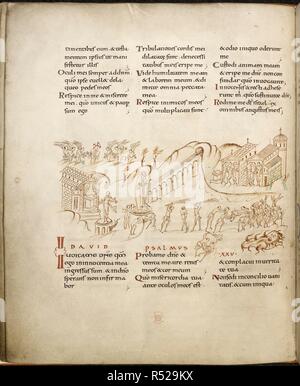 timentibus eum & testa
mentum ipsius ut mani
festetur illis
Oculi mei semper ad dnm
quo ipse euellet de la
queo pedes meos
Respice in me & miserere
mei quo unicus & paup
sum ego
Tribulationes cordis mei
dilatatae sunt de necessi
tatibus meis eripe me
Vide humilitatem meam
& laborem meum & dimit
te omnia peccata
mea
Respice inimicos meos
quo multiplicati sunt
& odio iniquo oderunt
me
Custodi animam meam
& eripe me dne non con
fundar quo inuocaui te
Innocentes & recti adhese
runt m quo sustinui te dne
Redime me ds israhel ex om
nibus angustiis meis
DAVID PSALMUS XXV
Iudica me dne quo
ego in innocentia mea
ingressus sum & in dno
sperans non infirma
bor
Proba me dne &
tempta me ure renes
meos & cor meum
Quo misericordia tua
ante oculos meos est
& conplacui in uerita
te tua
Non sedi in concilio uani
tatis & cum iniqua
alamy
R529KX